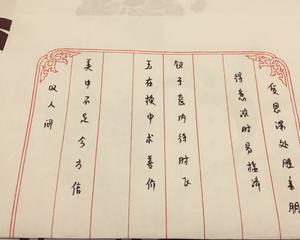 受恩深处胜亲朋
得意浓时易接济
钗于奁内待时飞
玉在椟中求善价
美中不足今方信
叹人间